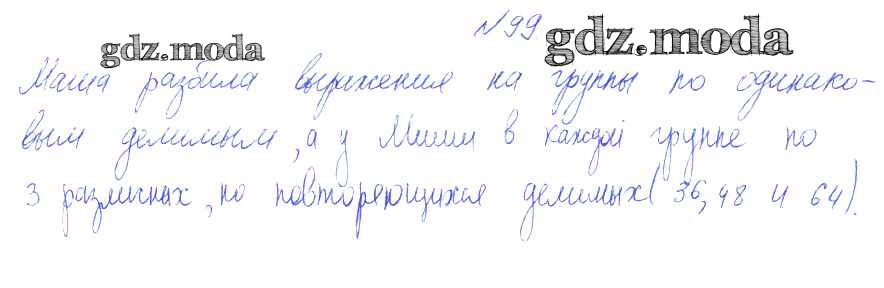 №99
gdz.moda gdz.moda
Маша разбила выражения на группы по одинако-
вым делимым, а у Миши в каждой группе по
3 различных, но повторяющихся делимых (36, 48 и 64).